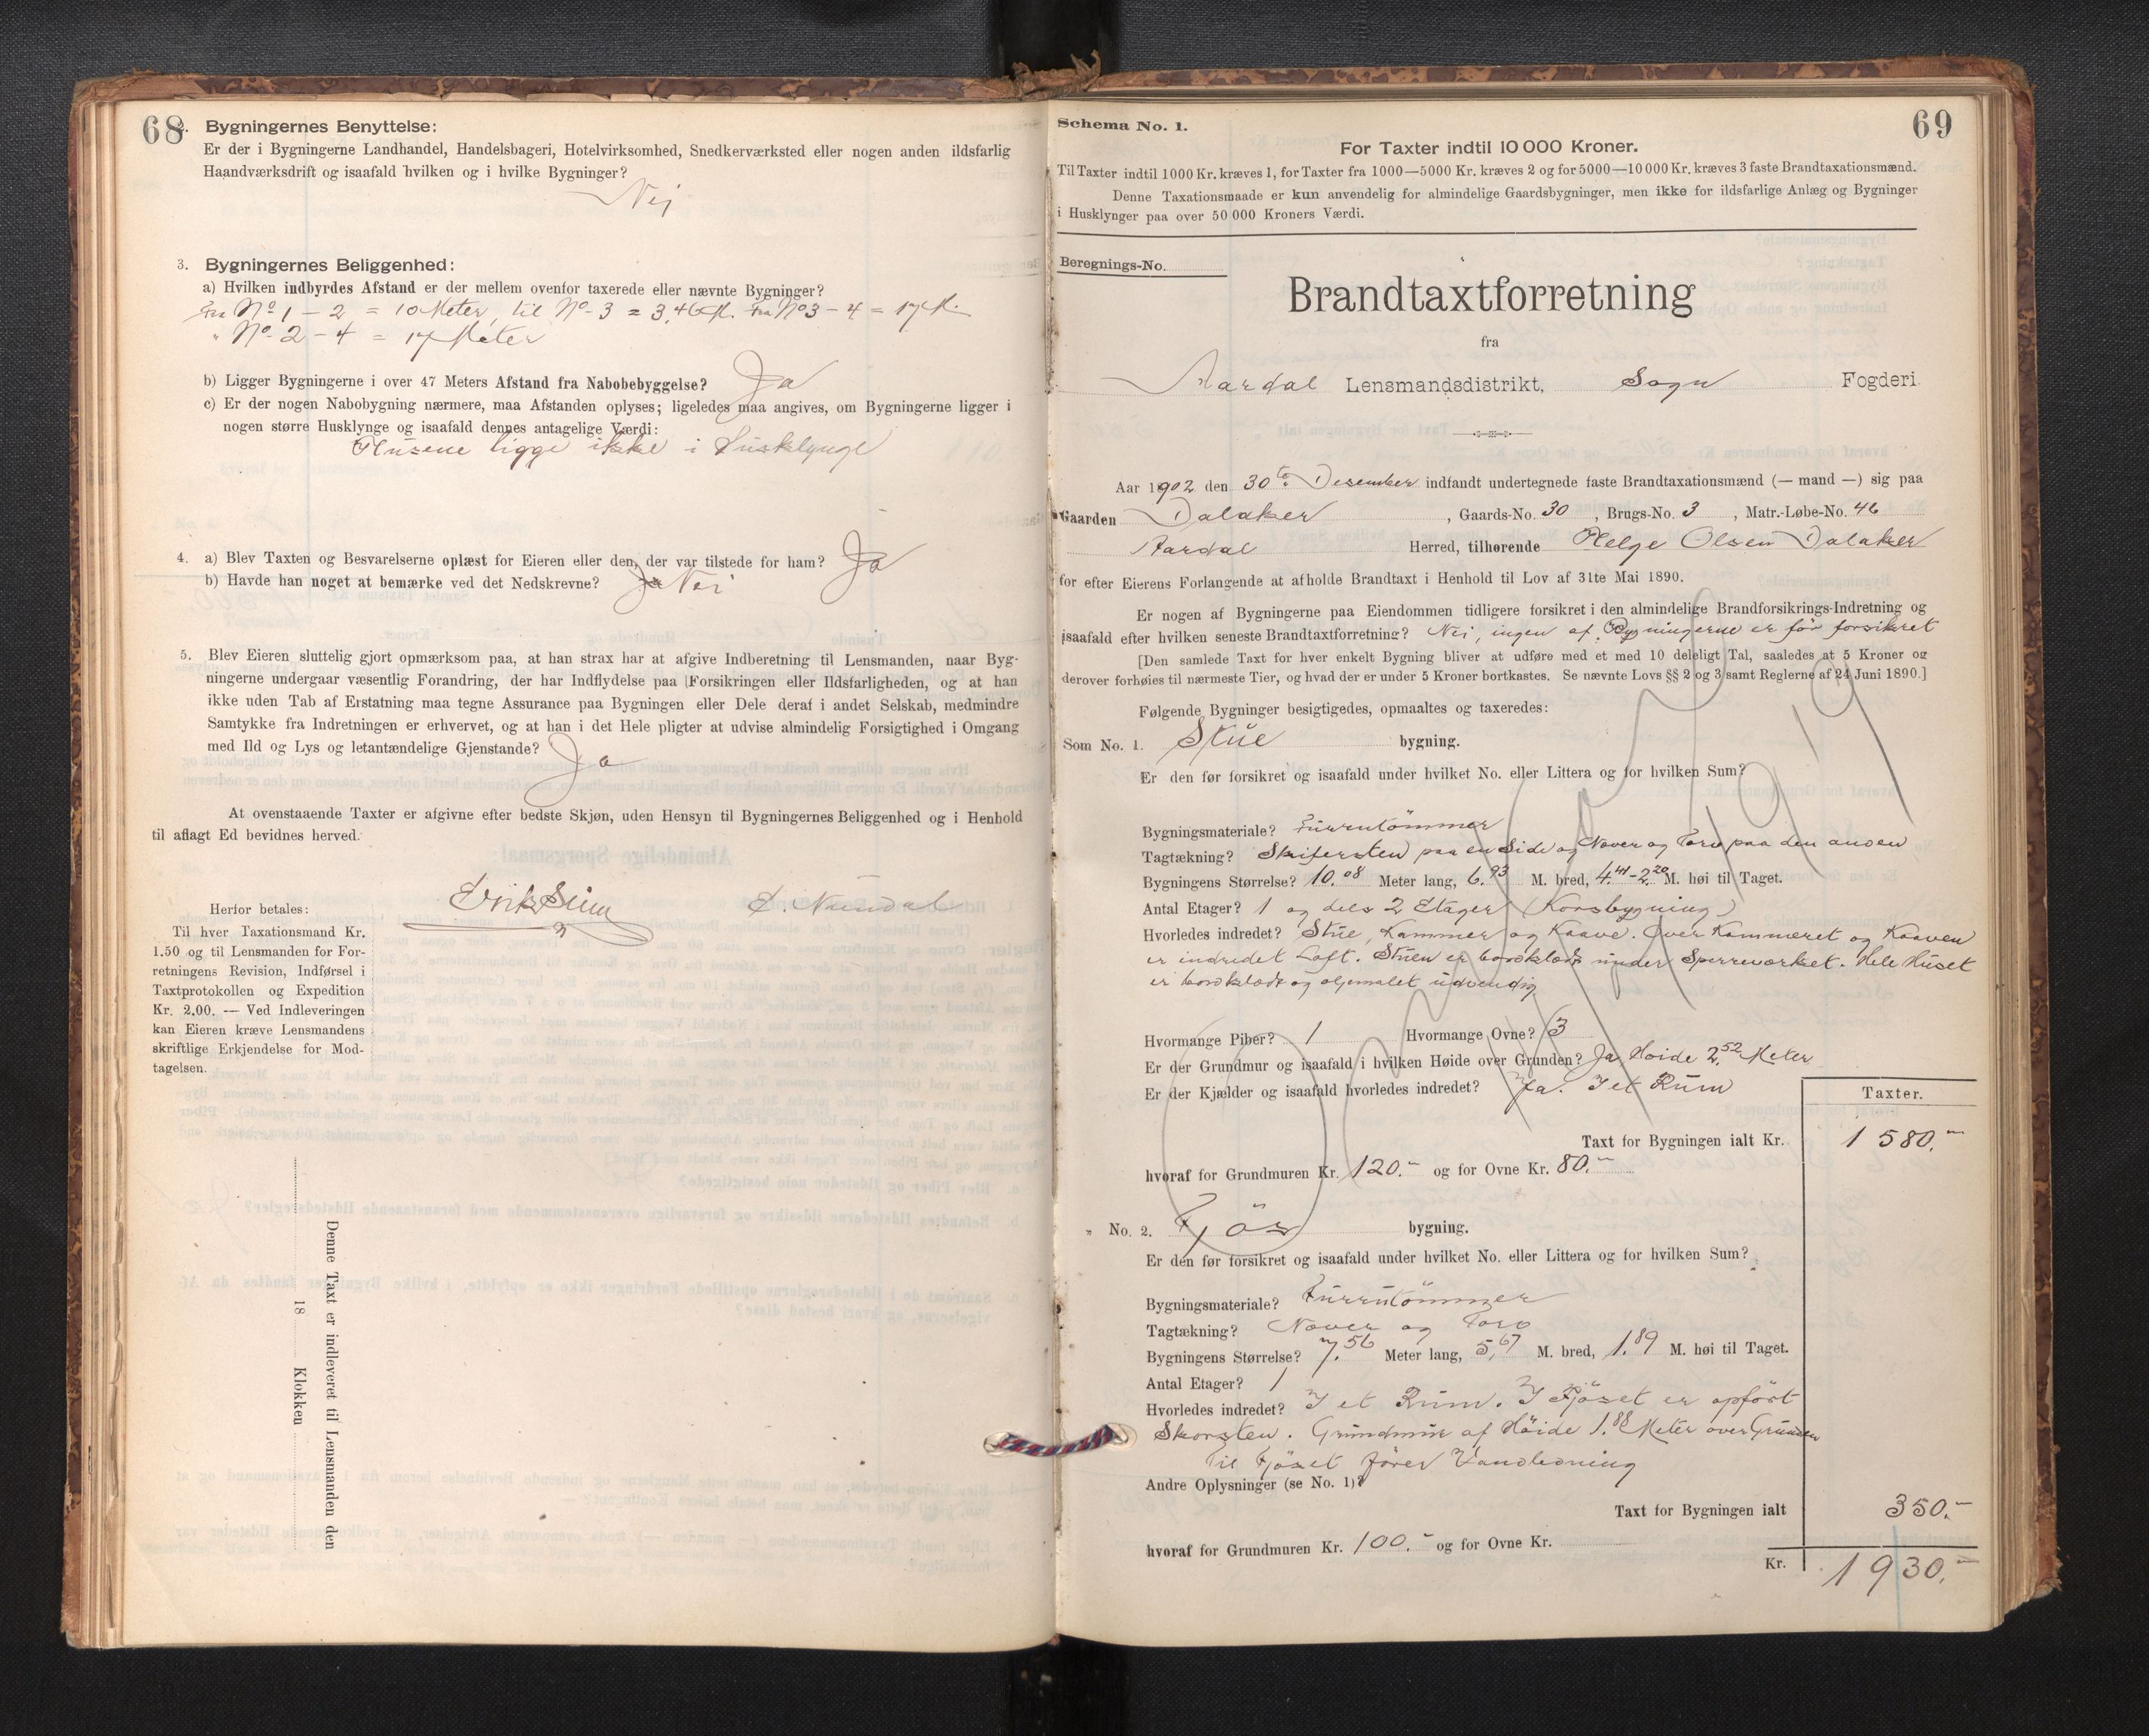 68
2. Bygningernes Benyttelse:
Er der i Bygningerne Landhandel, Handelsbageri, Hotelvirksomhed, Snedkerværksted eller nogen anden ildsfarlig
Haandværksdrift og isaafald hvilken og i hvilke Bygninger?
Nej
3. Bygningernes Beliggenhed:
a) Hvilken indbyrdes Afstand er der mellem ovenfor taxerede eller nævnte Bygninger?
Fra No 1 – 2 = 10 Meter, til No 3 = 3,46 M. Fra No 3 – 4 = 17 M.
" No 2 – 4 = 17 Meter
b) Ligger Bygningerne i over 47 Meters Afstand fra Nabobebyggelse? Ja
c) Er der nogen Nabobygning nærmere, maa Afstanden oplyses; ligeledes maa angives, om Bygningerne ligger i
nogen større Husklynge og isaafald dennes antagelige Værdi:
Husene ligge ikke i Husklynge
4. a) Blev Taxten og Besvarelserne oplæst for Eieren eller den, der var tilstede for ham? Ja
b) Havde han noget at bemærke ved det Nedskrevne? Ja Nei
5. Blev Eieren sluttelig gjort opmærksom paa, at han strax har at afgive Indberetning til Lensmanden, naar Byg-
ningerne undergaar væsentlig Forandring, der har Indflydelse paa Forsikringen eller Ildsfarligheden, og at han
ikke uden Tab af Erstatning maa tegne Assurance paa Bygningen eller Dele deraf i andet Selskab, medmindre
Samtykke fra Indretningen er erhvervet, og at han i det Hele pligter at udvise almindelig Forsigtighed i Omgang
med Ild og Lys og letantændelige Gjenstande? Ja
At ovenstaaende Taxter er afgivne efter bedste Skjøn, uden Hensyn til Bygningernes Beliggenhed og i Henhold
til aflagt Ed bevidnes herved.
Erik Seim
Herfor betales:
Til hver Taxationsmand Kr.
1.50 og til Lensmanden for For-
retningens Revision, Indførsel i
Taxtprotokollen og Expedition
Kr. 2.00. — Ved Indleveringen
kan Eieren kræve Lensmandens
skriftlige Erkjendelse for Mod-
tagelsen.
Denne Taxt er indleveret til Lensmanden den
18 Klokken
69
Schema No. 1.
For Taxter indtil 10 000 Kroner.
Til Taxter indtil 1000 Kr. kræves 1, for Taxter fra 1000—5000 Kr. kræves 2 og for 5000—10 000 Kr. kræves 3 faste Brandtaxationsmænd.
Denne Taxationsmaade er kun anvendelig for almindelige Gaardsbygninger, men ikke for ildsfarlige Anlæg og Bygninger
i Husklynger paa over 50 000 Kroners Værdi.
Beregnings-No.
Brandtaxtforretning
fra
Aardal Lensmandsdistrikt, Sogn Fogderi
Aar 1902 den 30te Desember indfandt undertegnede faste Brandtaxationsmænd (— mand —) sig paa
Gaarden Dalaker, Gaards-No. 30, Brugs-No. 3, Matr.-Løbe-No. 46
Aardal Herred, tilhørende Helge Olsen Dalaker
for efter Eierens Forlangende at afholde Brandtaxt i Henhold til Lov af 31te Mai 1890.
Er nogen af Bygningerne paa Eiendommen tidligere forsikret i den almindelige Brandforsikrings-Indretning og
isaafald efter hvilken seneste Brandtaxtforretning? Nei, ingen af Bygningerne er før forsikret
[Den samlede Taxt for hver enkelt Bygning bliver at udføre med et med 10 deleligt Tal, saaledes at 5 Kroner og
derover forhøies til nærmeste Tier, og hvad der er under 5 Kroner bortkastes. Se nævnte Lovs §§ 2 og 3 samt Reglerne af 24 Juni 1890.]
Følgende Bygninger besigtigedes, opmaaltes og taxeredes:
Som No. 1. Stue bygning.
Er den før forsikret og isaafald under hvilket No. eller Littera og for hvilken Sum?
Bygningsmateriale? Furrutømmer
Tagtækning? Skifersten paa en Side og Næver og Torv paa den anden
Bygningens Størrelse? 10.08 Meter lang, 6.93 M. bred, 4.41–2.20 M. høi til Taget.
Antal Etager? 1 og dels 2 Etager (Korsbygning)
Hvorledes indredet? Stue, Kammer og Kaave. Over Kammeret og Kaaven
er indredet Loft. Stuen er bordklædt under Sperreværket. Hele Huset
er bordklædt og oljemalet udvendig
Hvormange Piber? 1 Hvormange Ovne? 3
Er der Grundmur og isaafald i hvilken Høide over Grunden? Ja, Høide 2.52 Meter
Er der Kjælder og isaafald hvorledes indredet? Ja. I et Rum
Taxter.
Taxt for Bygningen ialt Kr. 1 580.-
hvoraf for Grundmuren Kr. 120.- og for Ovne Kr. 80.-
" No. 2. Fjøs bygning.
Er den før forsikret og isaafald under hvilket No. eller Littera og for hvilken Sum?
Bygningsmateriale? Furrutømmer
Tagtækning? Næver og Torv
Bygningens Størrelse? 7.56 Meter lang, 5,67 M. bred, 1.89 M. høi til Taget.
Antal Etager? 1
Hvorledes indredet? I et Rum. I Fjøset er opført
Skorsten. Grundmur af Høide 1.88 Meter over Grunden
Til Fjøset fører Vandledning
Andre Oplysninger (se No. 1)?
Taxt for Bygningen ialt 350.-
hvoraf for Grundmuren Kr. 100.- og for Ovne Kr.
Kr. 1930.-